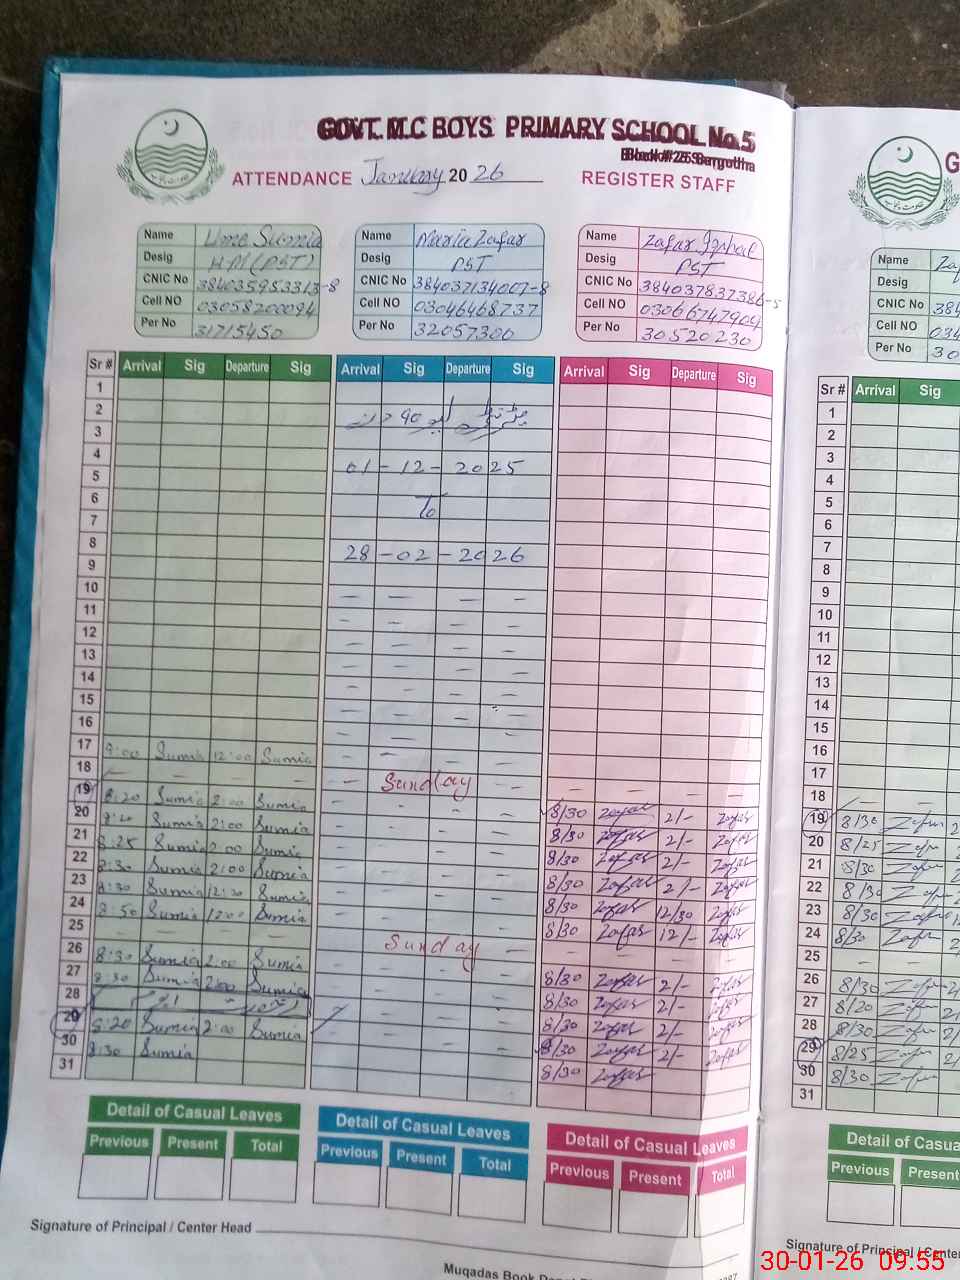 GOVT. M.C BOYS PRIMARY SCHOOL No.5
Block # 25 Sargodha
ATTENDANCE January 2026
REGISTER STAFF
Name Ume Sumia
Desig HM (PST)
CNIC No 384035953313-8
Cell NO 03058200094
Per No 31715450
Name Maria Zafar
Desig PST
CNIC No 384037134007-8
Cell NO 03046468737
Per No 32057300
Name Zafar Iqbal
Desig PST
CNIC No 384037837386-5
Cell NO 03066747904
Per No 30520230
Sr # Arrival Sig Departure Sig Arrival Sig Departure Sig Arrival Sig Departure Sig
1
2
3
4
5 01-12-2025
6
7 To
8
9 28-02-2026
10
11
12
13
14
15
16
17 9:00 Sumia 12:00 Sumia
18 Sunday
19 8:20 Sumia 2:00 Sumia 8/30 Zafar 2/- Zafar
20 8:20 Sumia 2:00 Sumia 8/30 Zafar 2/- Zafar
21 8:25 Sumia 2:00 Sumia 8/30 Zafar 2/- Zafar
22 8:30 Sumia 2:00 Sumia 8/30 Zafar 2/- Zafar
23 8:30 Sumia 12:30 Sumia 8/30 Zafar 12/30 Zafar
24 8:50 Sumia 12:00 Sumia 8/30 Zafar 12/- Zafar
25 Sunday
26 8:30 Sumia 2:00 Sumia 8/30 Zafar 2/- Zafar
27 8:30 Sumia 2:00 Sumia 8/30 Zafar 2/- Zafar
28 8/30 Zafar 2/- Zafar
29 8:20 Sumia 2:00 Sumia 8/30 Zafar 2/- Zafar
30 8:30 Sumia 8/30 Zafar
31
Detail of Casual Leaves
Previous Present Total
Detail of Casual Leaves
Previous Present Total
Detail of Casual Leaves
Previous Present Total
Signature of Principal / Center Head
Muqadas Book Depot
Name
Desig
CNIC No 384
Cell NO 034
Per No 30
Sr # Arrival Sig
1
2
3
4
5
6
7
8
9
10
11
12
13
14
15
16
17
18
19 8/30 Zafar 2
20 8/25 Zafar
21 8/30 Zafar
22 8/30 Zafar
23 8/30 Zafar
24 8/30 Zafar
25
26 8/30 Zafar
27 8/20 Zafar
28 8/30 Zafar
29 8/25 Zafar
30 8/30 Zafar
31
Detail of Casua
Previous Present
Signature of Principal / Center
30-01-26 09:55